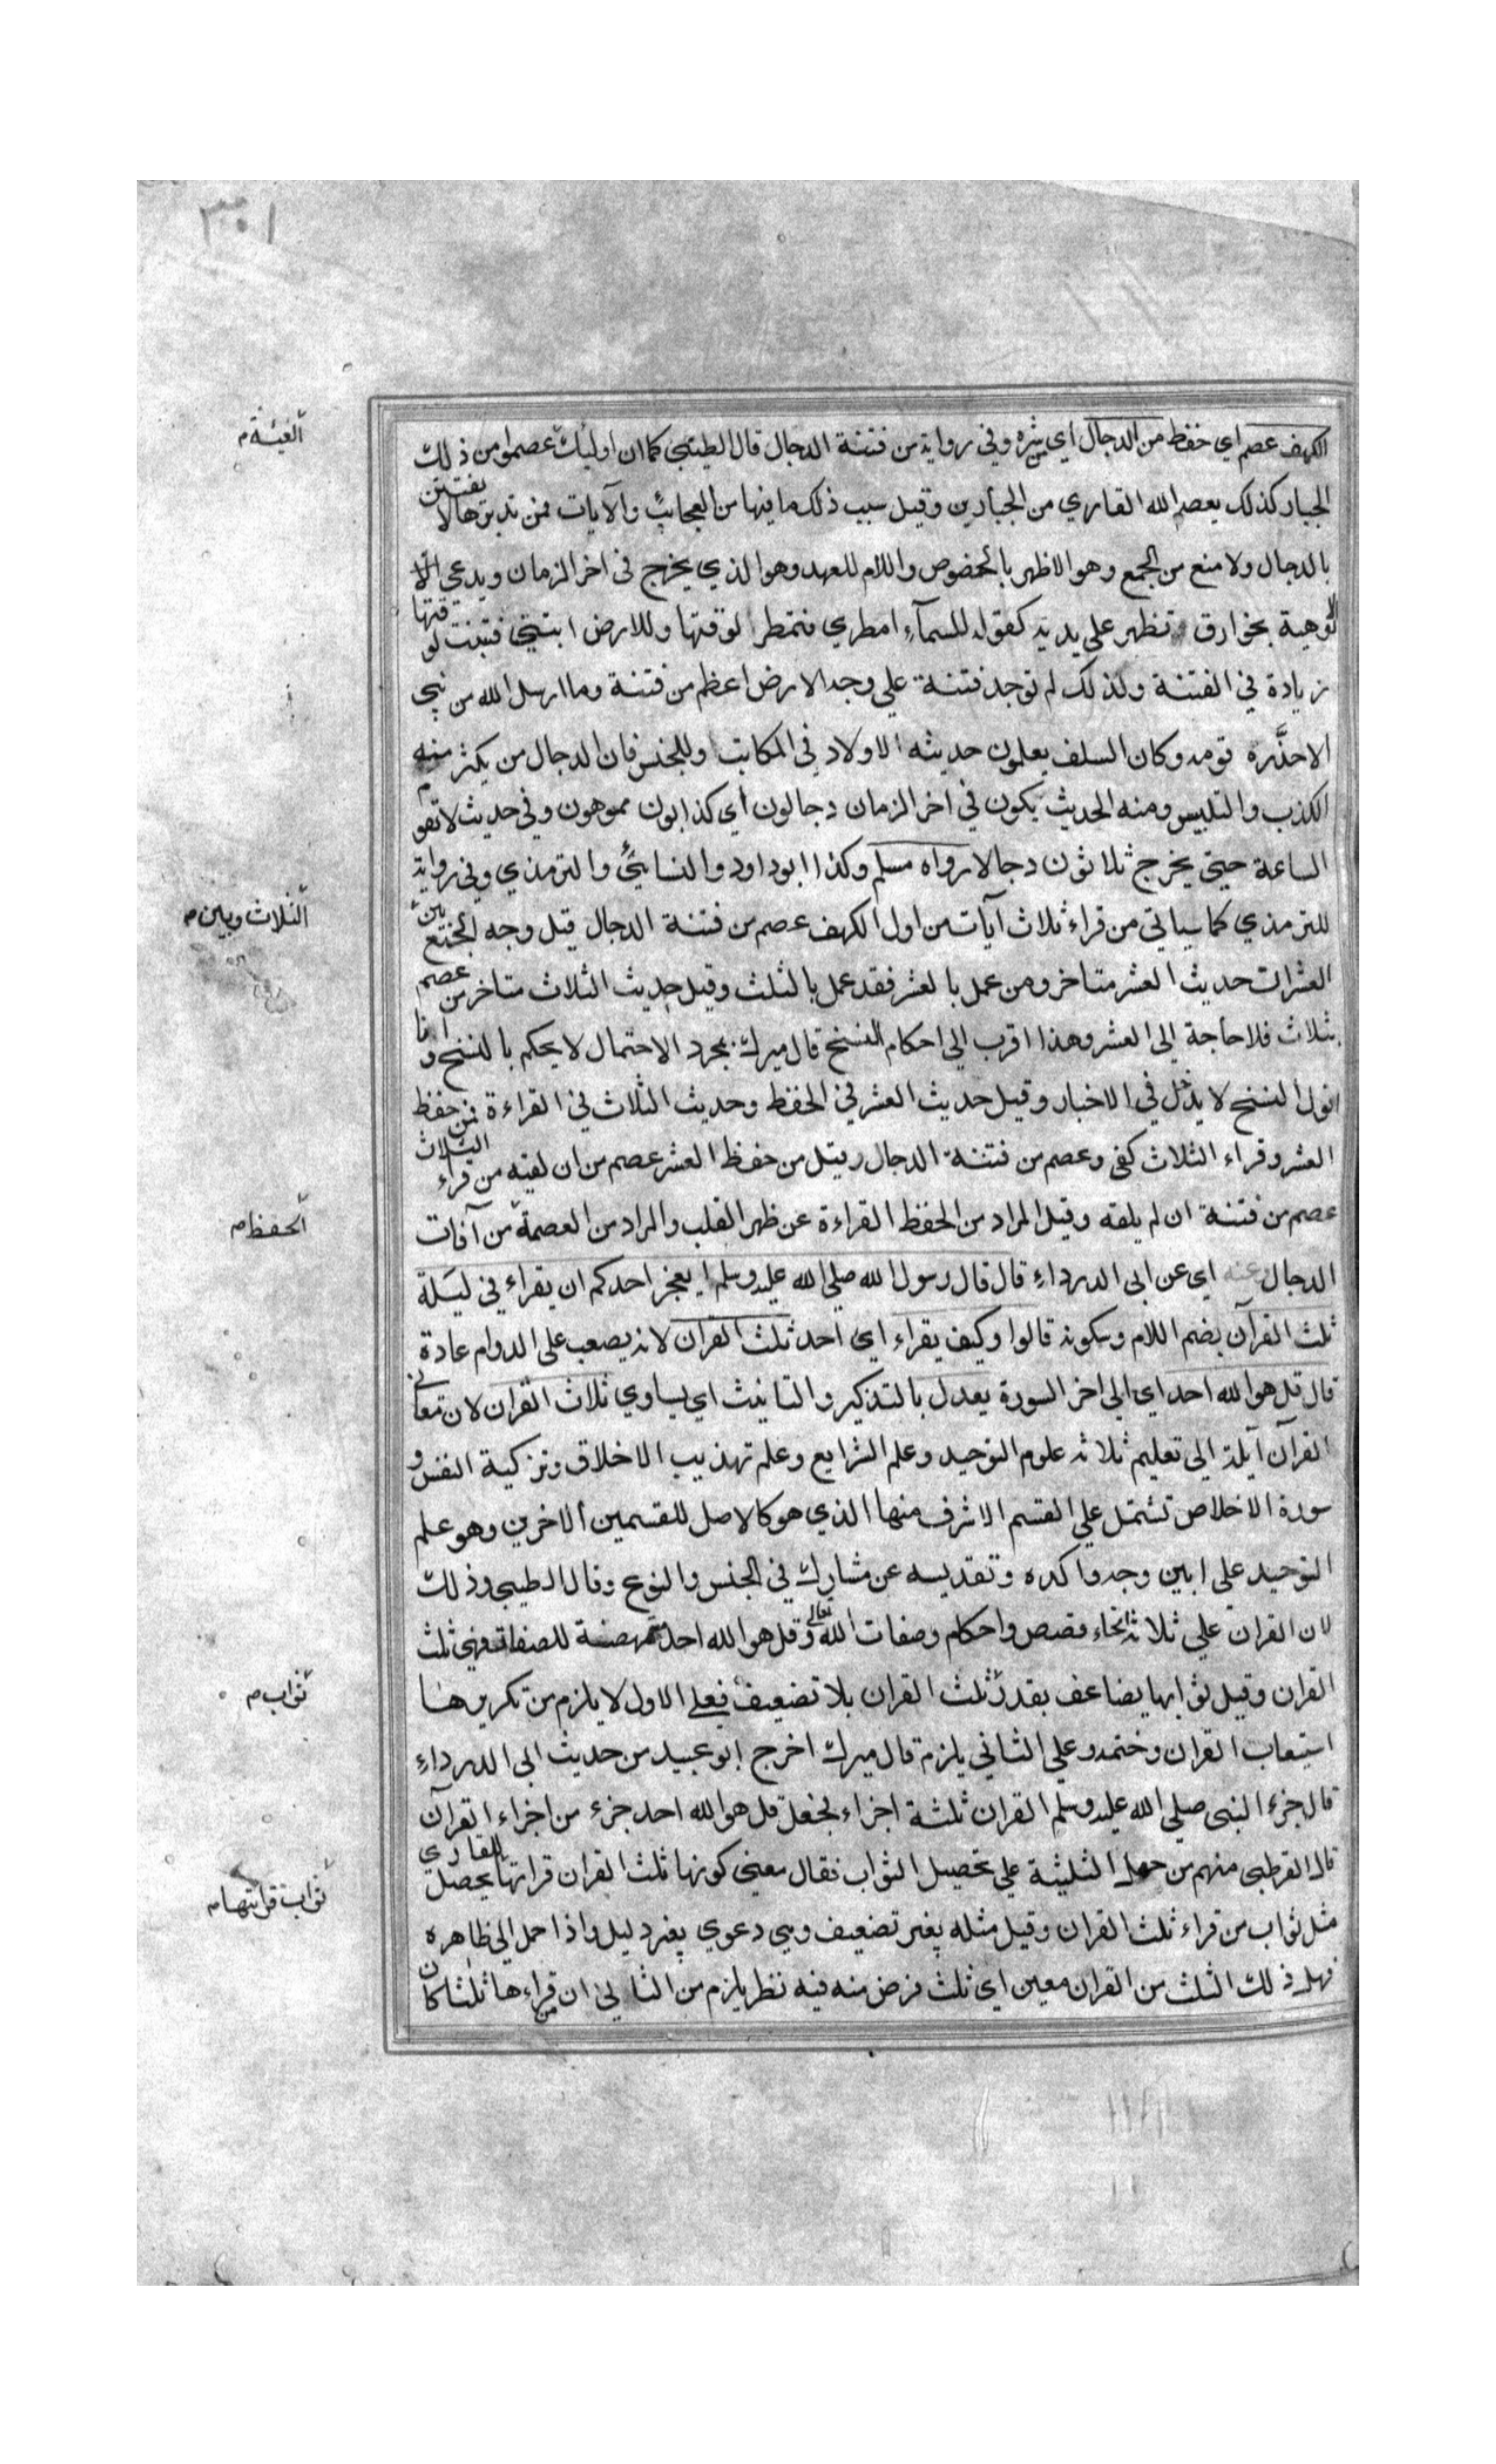 ٣٠١
الكهف عصم اي حفظ من الدجال اي شره وفي رواية من فتنة الدجال قال الطيبي كما ان اولئك عصموا من ذلك
الجبار كذلك يعصم الله القاري من الجبارين وقيل سبب ذلك ما فيها من العجائب والآيات فمن تدبرها لا يفتتن
بالدجال ولا منع من الجمع وهو الاظهر بالخصوص واللام للعهد وهو الذي يخرج في اخر الزمان ويدعي الا
لوهية بخوارق تظهر على يديه كقوله للسمآء امطري فتمطر لوقتها وللارض انبتي فتنبت لوقتها
زيادة في الفتنة ولذلك لم توجد فتنة على وجه الارض اعظم من فتنة وما ارسل الله من نبي
الا حذَّره قومه وكان السلف يعلمون حديثه الاولاد في المكاتب او للجنس فان الدجال من يكثر منه
الكذب والتلبيس ومنه الحديث يكون في اخر الزمان دجالون أي كذابون مموهون وفي حديث لا تقوم
الساعة حتى يخرج ثلاثون دجالا رواه مسلم وكذا ابو داود والنسائي والترمذي وفي رواية
للترمذي كما سياتي من قراء ثلاث آيات من اول الكهف عصم من فتنة الدجال قيل وجه الجمع بين
العشر ان حديث العشر متاخر ومن عمل بالعشر فقد عمل بالثلث وقيل حديث الثلاث متاخر من عصم
بثلاث فلا حاجة الى العشر وهذا اقرب الى احكام النسخ قال ميرك بمجرد الاحتمال لا يحكم بالنسخ وانا
اقول النسخ لا يدخل في الاخبار وقيل حديث العشر في الحفظ وحديث الثلاث في القراءة فمن حفظ
العشر وقراء الثلاث كفي وعصم من فتنة الدجال وقيل من حفظ العشر عصم من ان لقيه من قراء الثلاث
عصم من فتنة ان لم يلقه وقيل المراد من الحفظ القراءة عن ظهر القلب والمراد من العصمة من آفات
الدجال عنه اي عن ابي الدرداء قال قال رسول الله صلي الله عليه وسلم ايعجز احدكم ان يقراء في ليلة
ثلث القرآن بضم اللام وسكونه قالوا وكيف يقراء اي احد ثلث القران لانه يصعب على الدوام عادة
قال قل هو الله احد اي الى اخر السورة يعدل بالتذكير والتانيث اي يساوي ثلاث القران لان معاني
القرآن آيلة الى تعليم ثلاثة علوم التوحيد وعلم الشرايع وعلم تهذيب الاخلاق وتزكية النفس و
سورة الاخلاص تشتمل على القسم الاشرف منها الذي هو كالاصل للقسمين الاخرين وهو علم
التوحيد على ابين وجه واكده وتقديسه عن مشارك في الجنس والنوع وقال الطيبي وذلك
لان القران على ثلاثة انحاء قصص واحكام وصفات الله تعالى وقل هو الله احد متمحضة للصفات فهي ثلث
القران وقيل ثوابها يضاعف بقدر ثلث القران بلا تضعيف فعلى الاول لا يلزم من تكريرها
استيعاب القران وختمه وعلى الثاني يلزم قال ميرك اخرج ابو عبيد من حديث ابي الدرداء
قال جزء النبي صلي الله عليه وسلم القران ثلثة اجزاء فجعل قل هو الله احد جزء من اجزاء القرآن
قال القرطبي منهم من حمل الثلثية على تحصيل الثواب فقال معنى كونها ثلث القران قراتها يحصل للقاري
مثل ثواب من قراء ثلث القران وقيل مثله بغير تضعيف وهي دعوي بغير دليل واذا حمل الى ظاهره
فهل ذلك الثلث من القران معين اي ثلث فرض منه فيه نظر يلزم من الثاني ان من قراءها ثلثا كان
الفيئة م
الثلاث وبين م
الحفظ م
ثواب م
ثواب قرائتها م